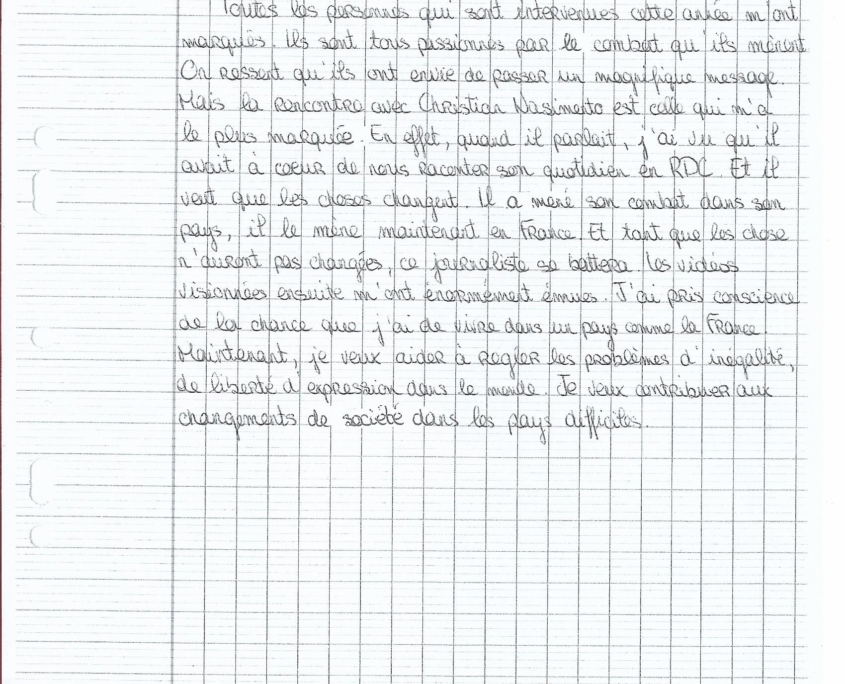 Toutes les personnes qui sont intervenues cette année m'ont
marqués. Ils sont tous passionnés par le combat qu'ils mènent
On ressent qu'ils ont envie de passer un magnifique message.
Mais la rencontre avec Christian Nasimento est celle qui m'a
le plus marquée. En effet, quand il parlait, j'ai vu qu'il
avait à coeur de nous raconter son quotidien en RDC. Et il
veut que les choses changent. Il a mené son combat dans son
pays, il le mène maintenant en France. Et tant que les chose
n'auront pas changées, ce journaliste se battera. Les vidéos
visionnées ensuite m'ont énormément émues. J'ai pris conscience
de la chance que j'ai de vivre dans un pays comme la France.
Maintenant, je veux aider à régler les problèmes d'inégalité,
de liberté d'expression dans le monde. Je veux contribuer aux
changements de société dans les pays difficiles.